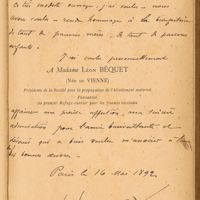 ce très modeste ouvrage, j'ai voulu - nous
avons voulu - rendre hommage à la
de tant de pauvres mères, de tant de pauvres
enfants.
J'ai voulu personnellement
A MADAME LÉON BÉQUET
(NÉE DE VIENNE)
Présidente de la Société pour la propagation de l'Allaitement maternel,
Fondatrice
du premier Refuge-ouvroir pour les femmes enceintes
affirmer ma affection, ma sincère
admiration pour l'amie bienveillante et
qui a bien voulu m'associer à
ses bonnes œuvres.
Paris le 16 Mai 1892